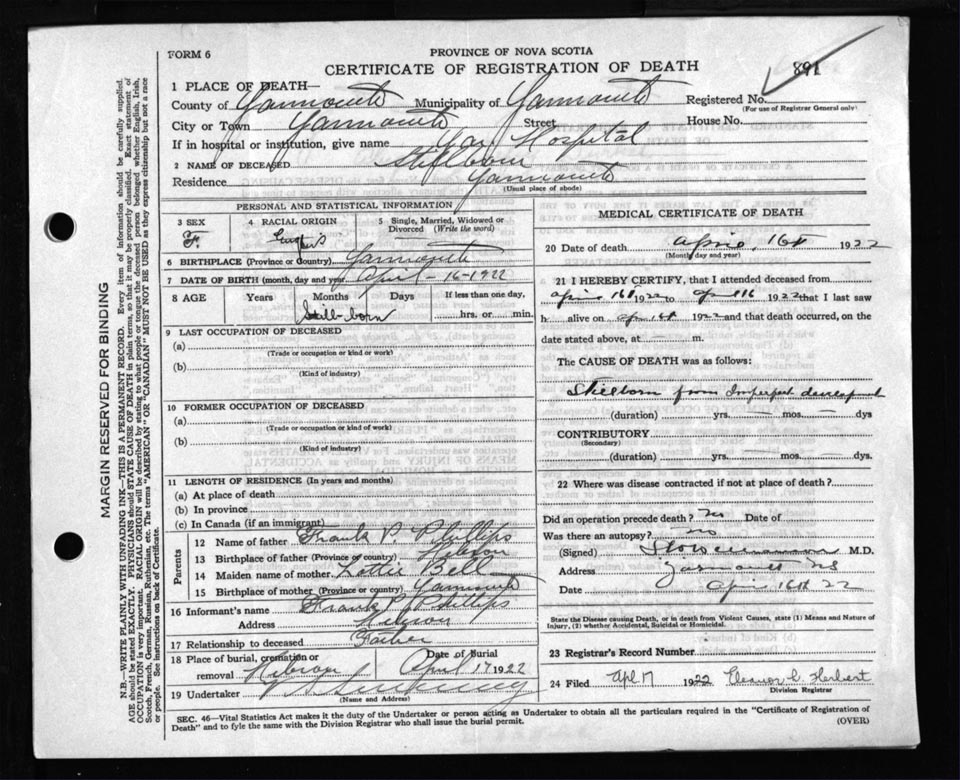 FORM 6
PROVINCE OF NOVA SCOTIA
CERTIFICATE OF REGISTRATION OF DEATH
891
1 PLACE OF DEATH—
County of Yarmouth Municipality of Yarmouth Registered No.
(For use of Registrar General only)
City or Town Yarmouth Street House No.
If in hospital or institution, give name Yar Hospital
2 NAME OF DECEASED Stillborn
Residence Yarmouth
(Usual place of abode)
PERSONAL AND STATISTICAL INFORMATION
3 SEX 4 RACIAL ORIGIN 5 Single, Married, Widowed or Divorced (Write the word)
F. English —
6 BIRTHPLACE (Province or Country) Yarmouth
7 DATE OF BIRTH (month, day and year) April - 16 - 1922
8 AGE Years Months Days If less than one day,
Still-born hrs. or min.
9 LAST OCCUPATION OF DECEASED
(a)
(Trade or occupation or kind or work)
(b)
(Kind of industry)
10 FORMER OCCUPATION OF DECEASED
(a)
(Trade or occupation or kind of work)
(b)
(Kind of industry)
11 LENGTH OF RESIDENCE (In years and months)
(a) At place of death
(b) In province
(c) In Canada (if an immigrant)
Parents
12 Name of father Frank P. Phillips
13 Birthplace of father (Province or country) Hebron
14 Maiden name of mother Lottie Bell
15 Birthplace of mother (Province or country) Yarmouth
16 Informant's name Frank P. Phillips
Address Hebron
17 Relationship to deceased Father
18 Place of burial, cremation or removal Hebron Date of burial April 17 1922
19 Undertaker
(Name and Address)
MEDICAL CERTIFICATE OF DEATH
20 Date of death April, 16th 1922
(Month, day and year)
21 I HEREBY CERTIFY, that I attended deceased from
April 16th 1922 to April 16 1922 that I last saw
h alive on 1922 and that death occurred, on the
date stated above, at m.
The CAUSE OF DEATH was as follows:
Stillborn from Imperfect development
(duration) yrs. — mos. — dys
CONTRIBUTORY
(Secondary)
(duration) yrs. — mos. — dys.
22 Where was disease contracted if not at place of death?
Did an operation precede death? no Date of
Was there an autopsy? no
(Signed) M.D.
Address Yarmouth NS
Date April 16th 22
State the Disease causing Death, or in death from Violent Causes, state (1) Means and Nature of Injury, (2) whether Accidental, Suicidal or Homicidal.
23 Registrar's Record Number
24 Filed Apl 17 1922 Eleanor L. Herbert
Division Registrar
SEC. 46—Vital Statistics Act makes it the duty of the Undertaker or person acting as Undertaker to obtain all the particulars required in the "Certificate of Registration of
Death" and to fyle the same with the Division Registrar who shall issue the burial permit.
(OVER)
MARGIN RESERVED FOR BINDING
N.B.—WRITE PLAINLY WITH UNFADING INK—THIS IS A PERMANENT RECORD. Every item of information should be carefully supplied.
AGE should be stated EXACTLY. PHYSICIANS should STATE CAUSE OF DEATH in plain terms, so that it may be properly classified. Exact statement of
OCCUPATION is very important. RACIAL ORIGIN will be described by stating to what people or tongue the deceased person belonged whether English, Irish,
Scotch, French, German, Russian, Ruthenian, etc. The terms "AMERICAN" OR "CANADIAN" MUST NOT BE USED as they express citizenship but not a race
or people. See instructions on back of Certificate.